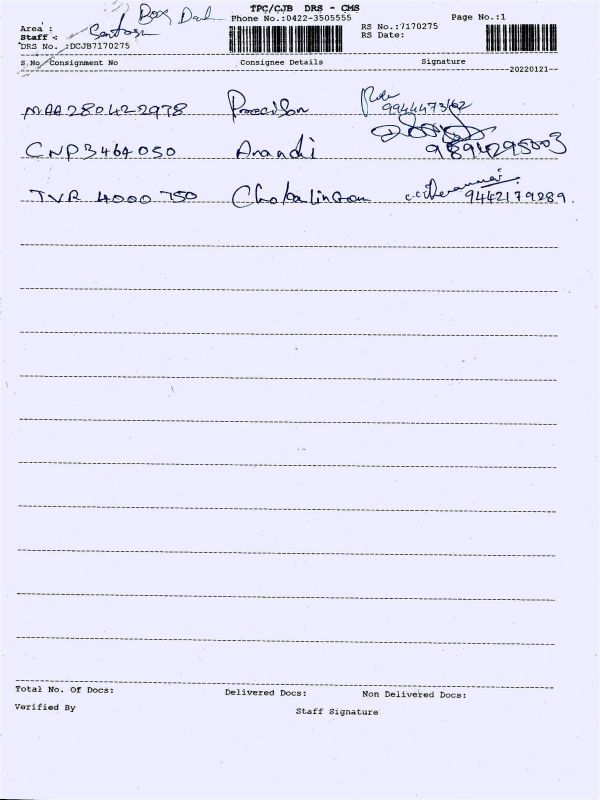 TPC/CJB DRS - CMS
Phone No.:0422-3505555
Page No.:1
Area :
RS No.:7170275
Staff <
Santosh
RS Date:
DRS No. :DCJB7170275
S.No Consignment No Consignee Details Signature
20220121
MAA280422978 Precision
CNP3464050 Anandi 9894295003
TVR 4000 750 Chokalingam 9442179289
Total No. Of Docs: Delivered Docs: Non Delivered Docs:
Verified By Staff Signature